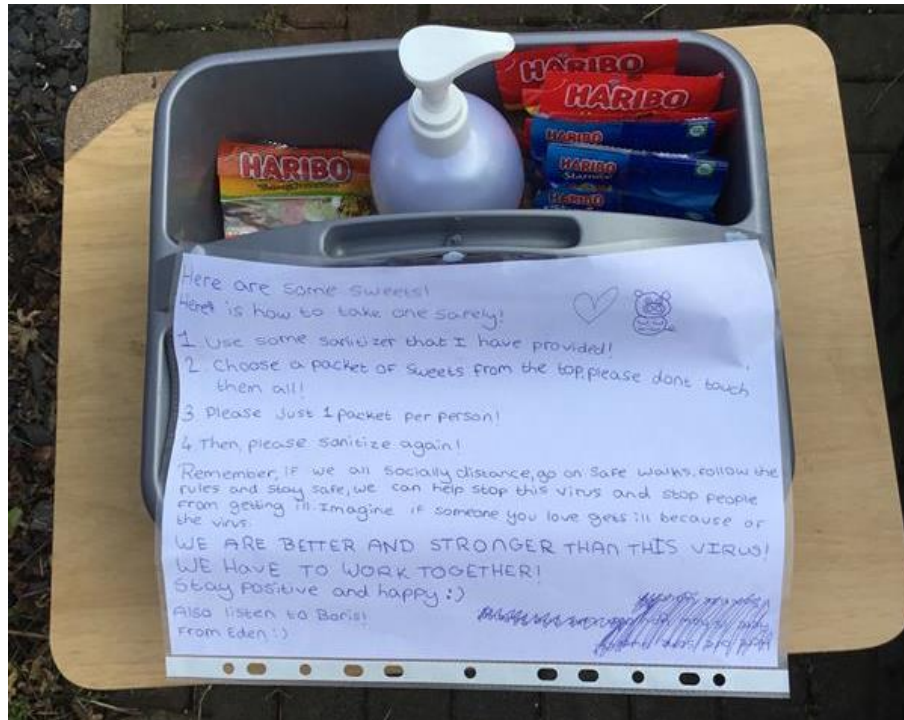 HARIBO
HARIBO
HARIBO
HARIBO
HARIBO
Starmix
HARIBO
Here are some sweets!
Here is how to take one safely!
1. Use some sanitizer that I have provided!
2. Choose a packet of sweets from the top, please dont touch
them all!
3. Please Just 1 packet per person!
4. Then, please sanitize again!
Remember, if we all socially distance, go on safe walks, follow the
rules and stay safe, we can help stop this virus and stop people
from getting ill. Imagine if someone you love gets ill because of
the virus.
WE ARE BETTER AND STRONGER THAN THIS VIRUS!
WE HAVE TO WORK TOGETHER!
Stay positive and happy :)
Also listen to Boris!
From Eden :)